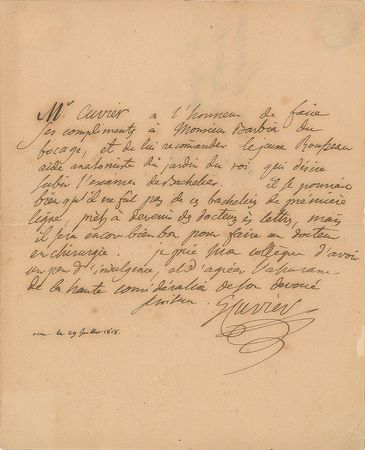 Mr. Cuvier a l'honneur de faire
ses compliments à Monsieur Barbié du
bocage, et de lui recomander le jeune Rousseau
aide anatomiste du jardin du roi, qui désire
subir l'examen de Bachelier. il se pourrait
bien qu'il ne fut pas de ces bacheliers de première
ligne, prêts à devenir des docteurs ès lettres, mais
il sera encore bien bon pour faire un docteur
en chirurgie. je prie mon collègue d'avoir
un peu d'indulgence, et d'agréer l'assurance
de la haute considération de son dévoué
serviteur. G Cuvier
le 29 1818.